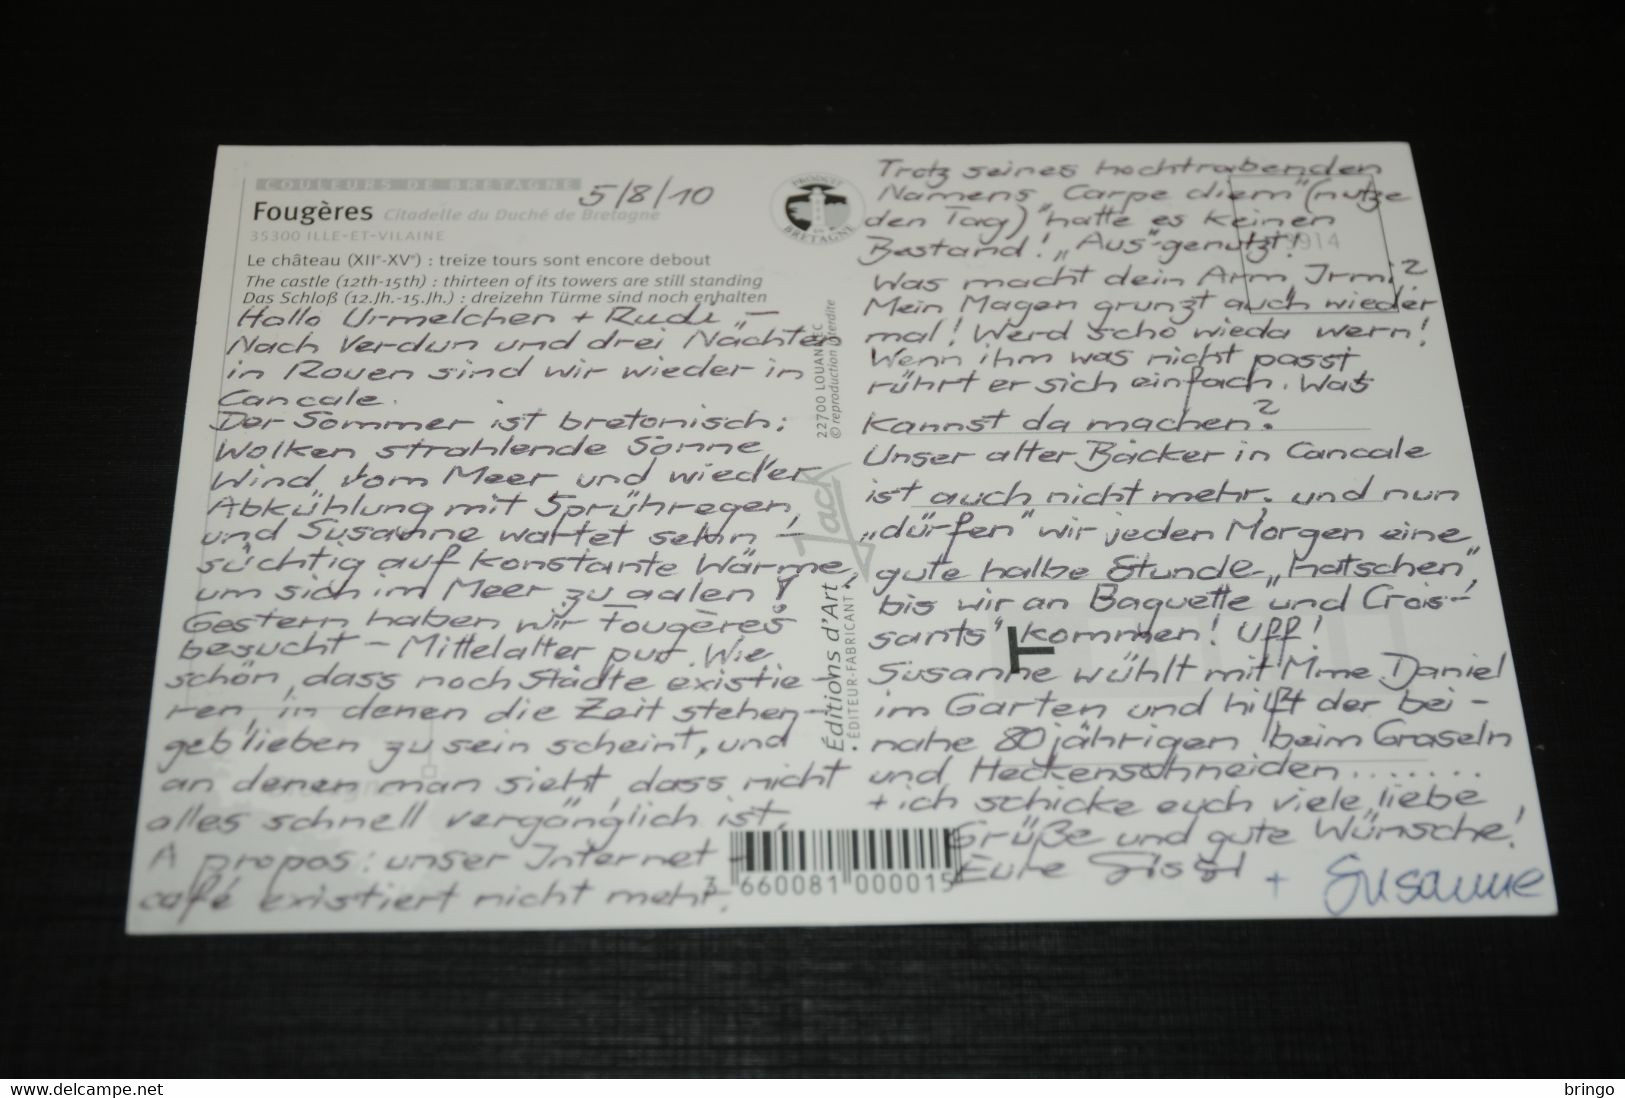 COULEURS DE BRETAGNE
5/8/10
Fougères Citadelle du Duché de Bretagne
35300 ILLE-ET-VILAINE
Le château (XIIe-XVe) : treize tours sont encore debout
The castle (12th-15th) : thirteen of its towers are still standing
Das Schloß (12.Jh.-15.Jh.) : dreizehn Türme sind noch enhalten
Hallo Urmelchen + Rudi, –
Nach Verdun und drei Nächten
in Rouen sind wir wieder in
Cancale.
Der Sommer ist bretonisch;
Wolken strahlende Sonne,
Wind vom Meer und wieder
Abkühlung mit Sprühregen,
und Susanne wartet sehn –
süchtig auf konstante Wärme,
um sich im Meer zu aalen!
Gestern haben wir Fougères
besucht – Mittelalter pur. Wie
schön, dass noch Städte existie –
ren, in denen die Zeit stehen –
geblieben zu sein scheint, und
an denen man sieht, dass nicht
alles schnell vergänglich ist.
A propos: unser Internet –
café existiert nicht mehr.
PRODUIT
EN
BRETAGNE
22700 LOUANNEC
© reproduction interdite
Jack
Éditions d'Art
• ÉDITEUR-FABRICANT •
3 660081 000015
Trotz seines hochtrabenden
Namens „Carpe diem“ (nutze
den Tag) hatte es keinen
Bestand! „Aus“-genutzt!
914
Was macht dein Arm, Irmi?
Mein Magen grunzt auch wieder
mal! Werd scho wieda wern!
Wenn ihm was nicht passt
rührt er sich einfach. Was
kannst da machen?
Unser alter Bäcker in Cancale
ist auch nicht mehr, und nun
„dürfen“ wir jeden Morgen eine
gute halbe Stunde „hatschen“,
bis wir an „Baguette und Crois –
sants“ kommen! Uff!
T
Susanne wühlt mit Mme Daniel
im Garten und hilft der bei –
nahe 80jährigen beim Graseln
und Heckenschneiden.......
+ ich schicke euch viele, liebe
Grüße und gute Wünsche!
Eure Sissi + Susanne
www.delcampe.net
bringo